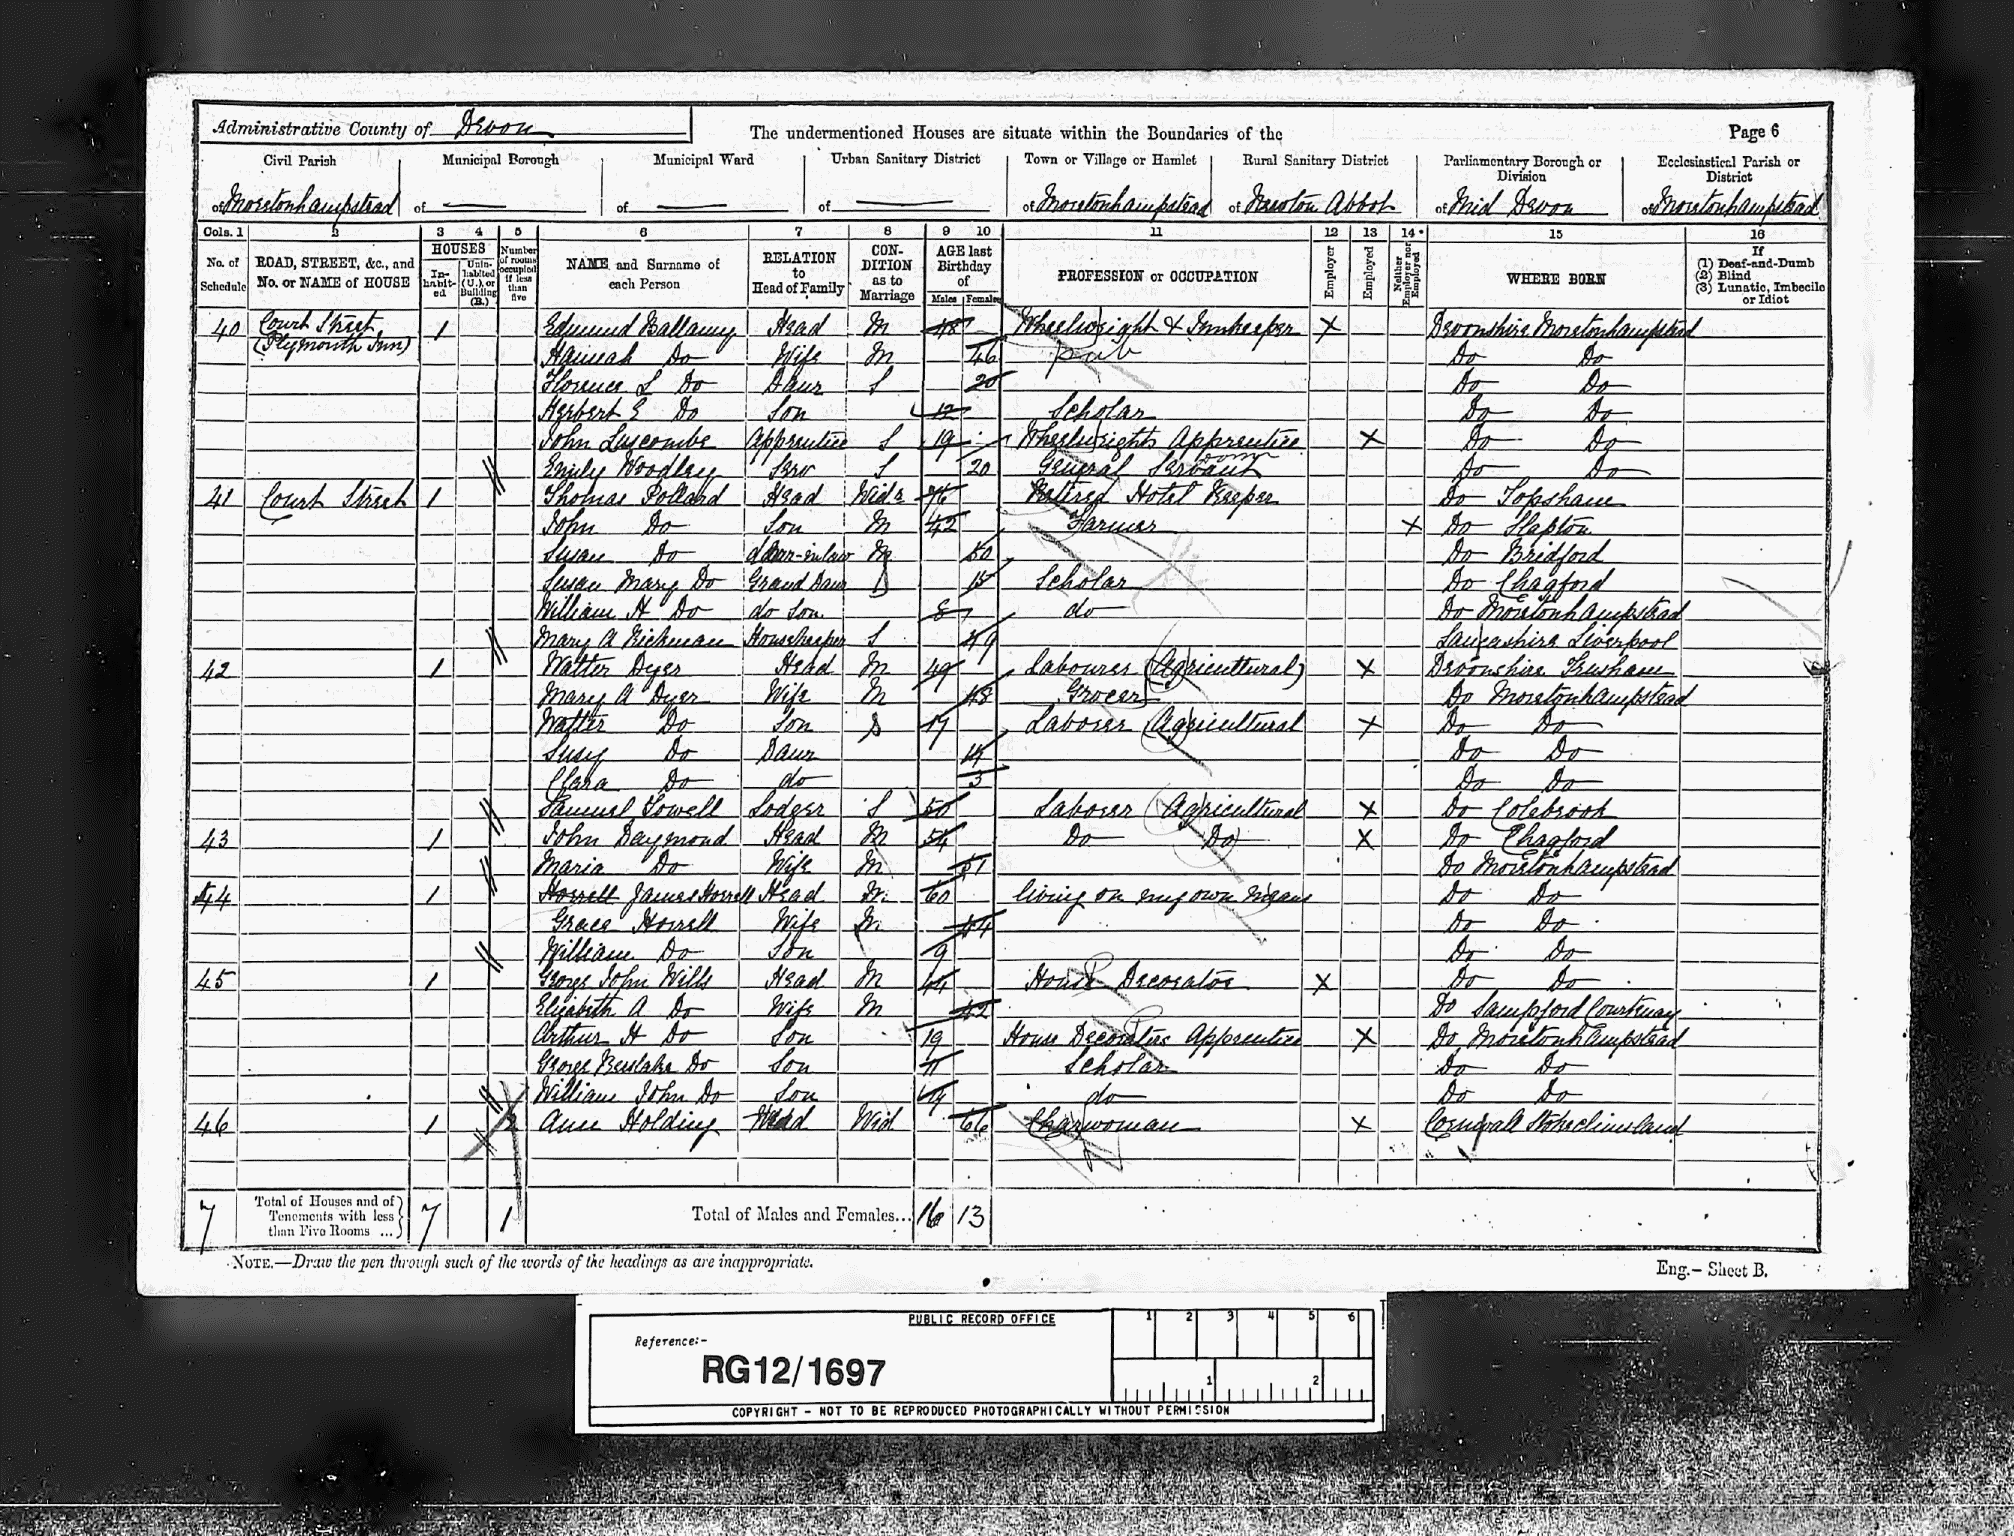 Administrative County of Devon
The undermentioned Houses are situate within the Boundaries of the
Page 6
Civil Parish Municipal Borough Municipal Ward Urban Sanitary District Town or Village or Hamlet Rural Sanitary District Parliamentary Borough or Division Ecclesiastical Parish or District
of Moretonhampstead of — of — of — of Moretonhampstead of Newton Abbot of Mid Devon of Moretonhampstead
Cols. 1 2 3 4 5 6 7 8 9 10 11 12 13 14 15 16
No. of Schedule ROAD, STREET, &c., and No. or NAME of HOUSE HOUSES Inhabited Uninhabited (U.), or Building (B.) Number of rooms occupied if less than five NAME and Surname of each Person RELATION to Head of Family CONDITION as to Marriage AGE last Birthday of Males Females PROFESSION or OCCUPATION Employer Employed Neither Employer nor Employed WHERE BORN If (1) Deaf-and-Dumb (2) Blind (3) Lunatic, Imbecile or Idiot
40 Court Street (Plymouth Inn) 1 Edmund Ballamy Head M 48 Wheelwright & Innkeeper X Devonshire Moretonhampstead
Hannah Do Wife M 46 pub Do Do
Florence L Do Daur S 20 Do Do
Herbert E Do Son 12 Scholar Do Do
John Luscombe Apprentice S 19 Wheelwrights Apprentice X Do Do
Emily Woodley Serv S 20 General Servant Dom Do Do
41 Court Street 1 Thomas Pollard Head Widr 76 Retired Hotel Keeper Do Topsham
John Do Son M 42 Farmer X Do Slapton
Susan Do daur-in-law M 50 Do Bridford
Susan Mary Do Grand Daur 15 Scholar Do Chagford
William H Do do Son 8 do Do Moretonhampstead
Mary A Rickman Housekeeper S 49 Lancashire Liverpool
42 1 Walter Dyer Head M 49 Labourer (Agricultural) X Devonshire Trusham
Mary A Dyer Wife M 48 Grocer Do Moretonhampstead
Walter Do Son S 17 Laborer (Agricultural X Do Do
Susy Do Daur 14 Do Do
Clara Do do 3 Do Do
Samuel Sowell Lodger S 50 Laborer (Agricultural X Do Colebrook
43 1 John Daymond Head M 54 Do Do X Do Chagford
Maria Do Wife M 51 Do Moretonhampstead
44 1 Horrell James Horrell Head M. 60 living on my own means Do Do
Grace Horrell Wife M. 54 Do Do
William Do Son 9 Do Do
45 1 George John Wills Head M 44 House Decorator X Do Do
Elizabeth A Do Wife M 42 Do Sampford Courtenay
Arthur H Do Son 19 House Decorators Apprentice X Do Moretonhampstead
George Do Son 11 Scholar Do Do
William John Do Son do Do Do
46 1 2 Ann Holding Head Wid 66 Charwoman X Cornwall Stokeclimsland
7 Total of Houses and of Tenements with less than Five Rooms ... 7 1 Total of Males and Females... 16 13
NOTE.—Draw the pen through such of the words of the headings as are inappropriate.
Eng.— Sheet B.
PUBLIC RECORD OFFICE
1 2 3 4 5 6
Reference:-
RG12/1697
1 2
COPYRIGHT - NOT TO BE REPRODUCED PHOTOGRAPHICALLY WITHOUT PERMISSION